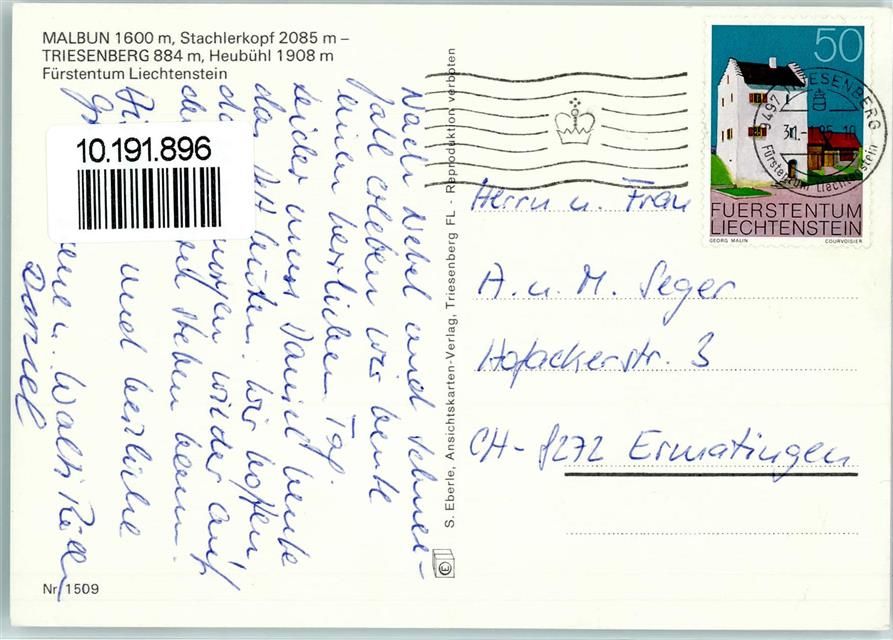 MALBUN 1600 m, Stachlerkopf 2085 m –
TRIESENBERG 884 m, Heubühl 1908 m
Fürstentum Liechtenstein
10.191.896
Nach Nebel und Schnee-
fall erleben wir heute
einen herrlichen Tag.
Leider muss Daniel heute
das Bett hüten. Wir hoffen
wieder auf
stehen kann.
und herzliche
u. Walti
Daniel
Nr. 1509
S. Eberle, Ansichtskarten-Verlag, Triesenberg FL - Reproduktion verboten
50
FUERSTENTUM
LIECHTENSTEIN
GEORG MALIN COURVOISIER
9497 TRIESENBERG
Fürstentum Liechtenstein
Herrn u. Frau
A. u. M. Seger
Hofackerstr. 3
CH-8272 Ermatingen